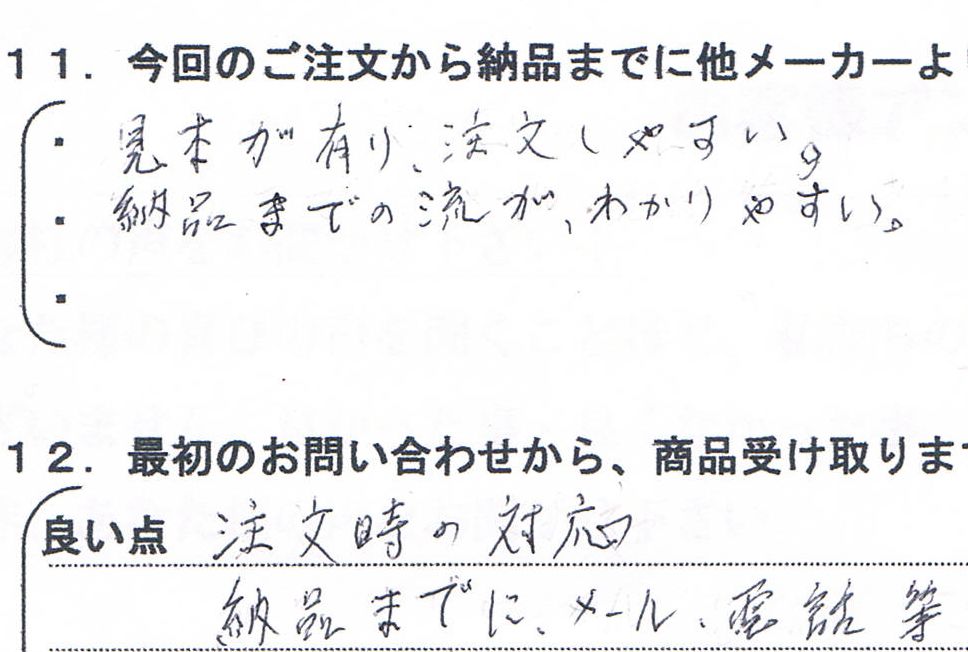 11．今回のご注文から納品までに他メーカーよ
・見本が有り、注文しやすい。
・納品までの流が、わかりやすい。
・
12．最初のお問い合わせから、商品受け取りま
良い点 注文時の対応
納品までに、メール、電話等